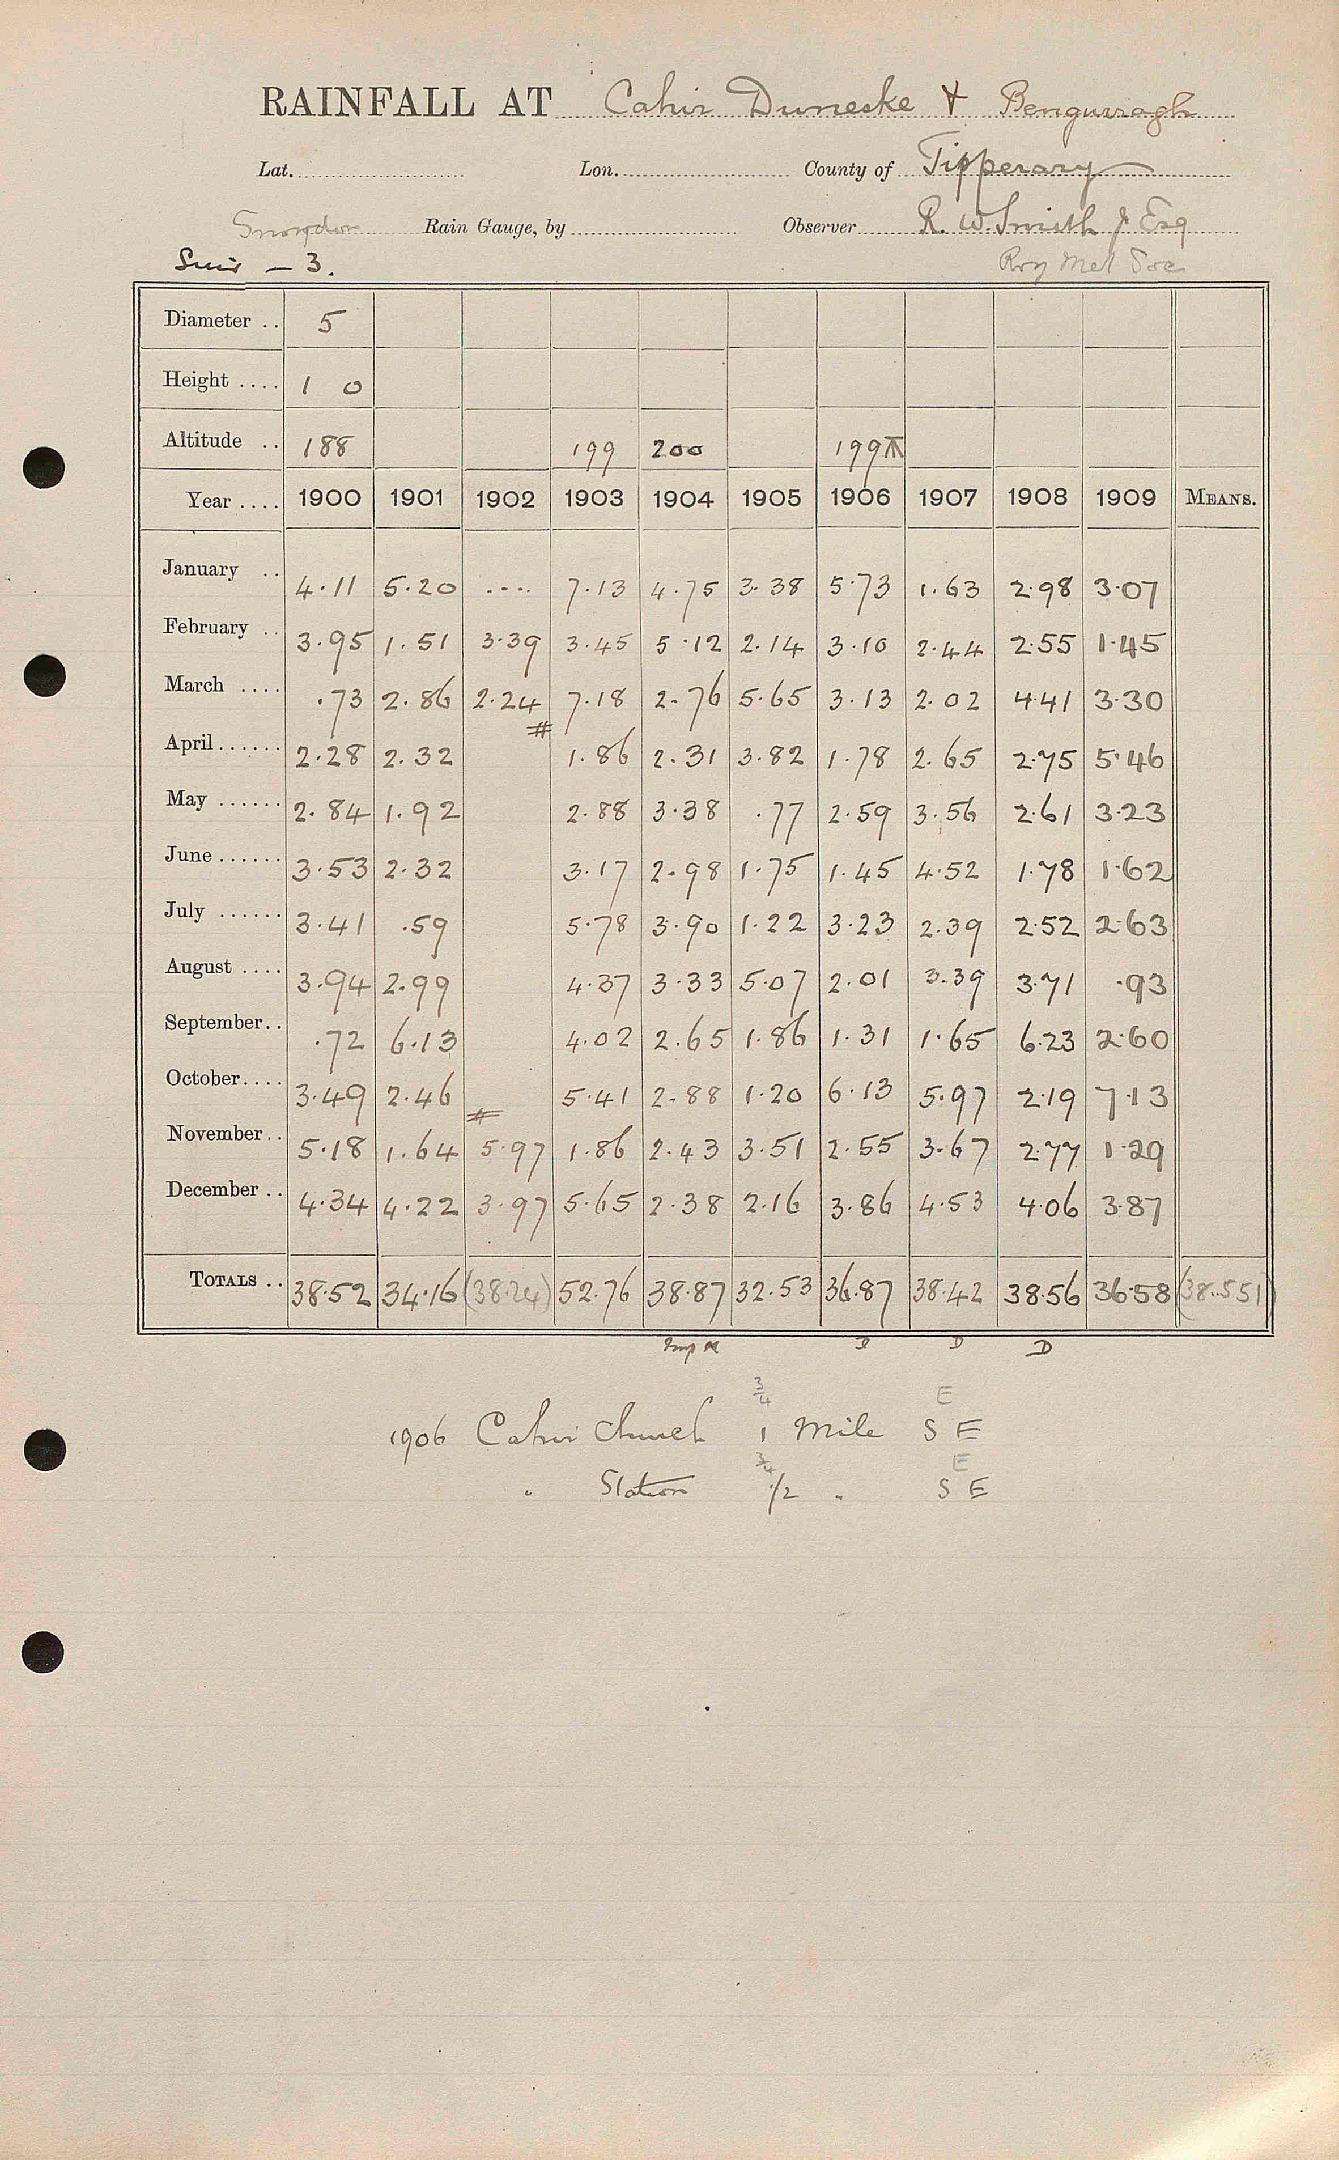 RAINFALL AT Cahir Duneske & Bengurragh
Lat. Lon. County of Tipperary
Snowdon Rain Gauge, by Observer R. W. Smith Jr Esq
Suir – 3. Roy Met Soc
Diameter .. 5
Height .... 1 0
Altitude .. 188 199 200 199
Year .... 1900 1901 1902 1903 1904 1905 1906 1907 1908 1909 MEANS.
January .. 4.11 5.20 .... 7.13 4.75 3.38 5.73 1.63 2.98 3.07
February .. 3.95 1.51 3.39 3.45 5.12 2.14 3.10 2.44 2.55 1.45
March .... .73 2.86 2.24 7.18 2.76 5.65 3.13 2.02 4.41 3.30
April ...... 2.28 2.32 # 1.86 2.31 3.82 1.78 2.65 2.75 5.46
May ...... 2.84 1.92 2.88 3.38 .77 2.59 3.56 2.61 3.23
June ...... 3.53 2.32 3.17 2.98 1.75 1.45 4.52 1.78 1.62
July ...... 3.41 .59 5.78 3.90 1.22 3.23 2.39 2.52 2.63
August .... 3.94 2.99 4.37 3.33 5.07 2.01 3.39 3.71 .93
September .. .72 6.13 4.02 2.65 1.86 1.31 1.65 6.23 2.60
October .... 3.49 2.46 # 5.41 2.88 1.20 6.13 5.97 2.19 7.13
November .. 5.18 1.64 5.97 1.86 2.43 3.51 2.55 3.67 2.77 1.29
December .. 4.34 4.22 3.97 5.65 2.38 2.16 3.86 4.53 4.06 3.87
TOTALS .. 38.52 34.16 (38.24) 52.76 38.87 32.53 36.87 38.42 38.56 36.58 (38.551)
D D D
3/4 E
1906 Cahir Church 1 Mile S E
3/4 E
" Station 1/2 " S E